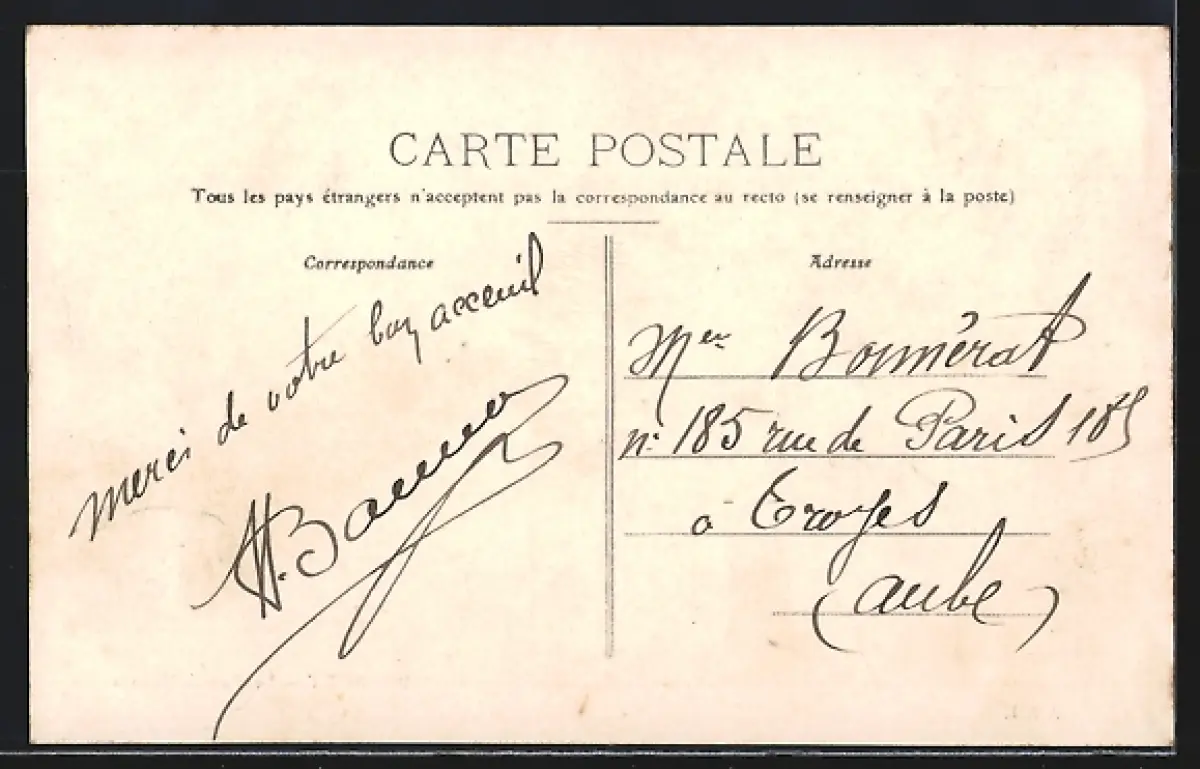 CARTE POSTALE
Tous les pays étrangers n'acceptent pas la correspondance au recto (se renseigner à la poste)
Correspondance
merci de votre bon acceuil
Adresse
Bonnérat
n: 185 rue de Paris 185
à Troyes
(aube)